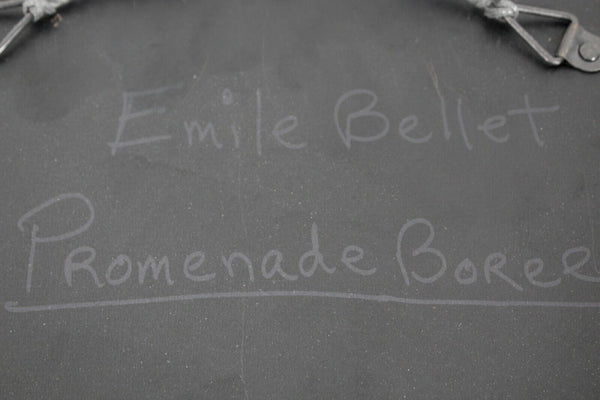 Emile Bellet
Promenade Boree